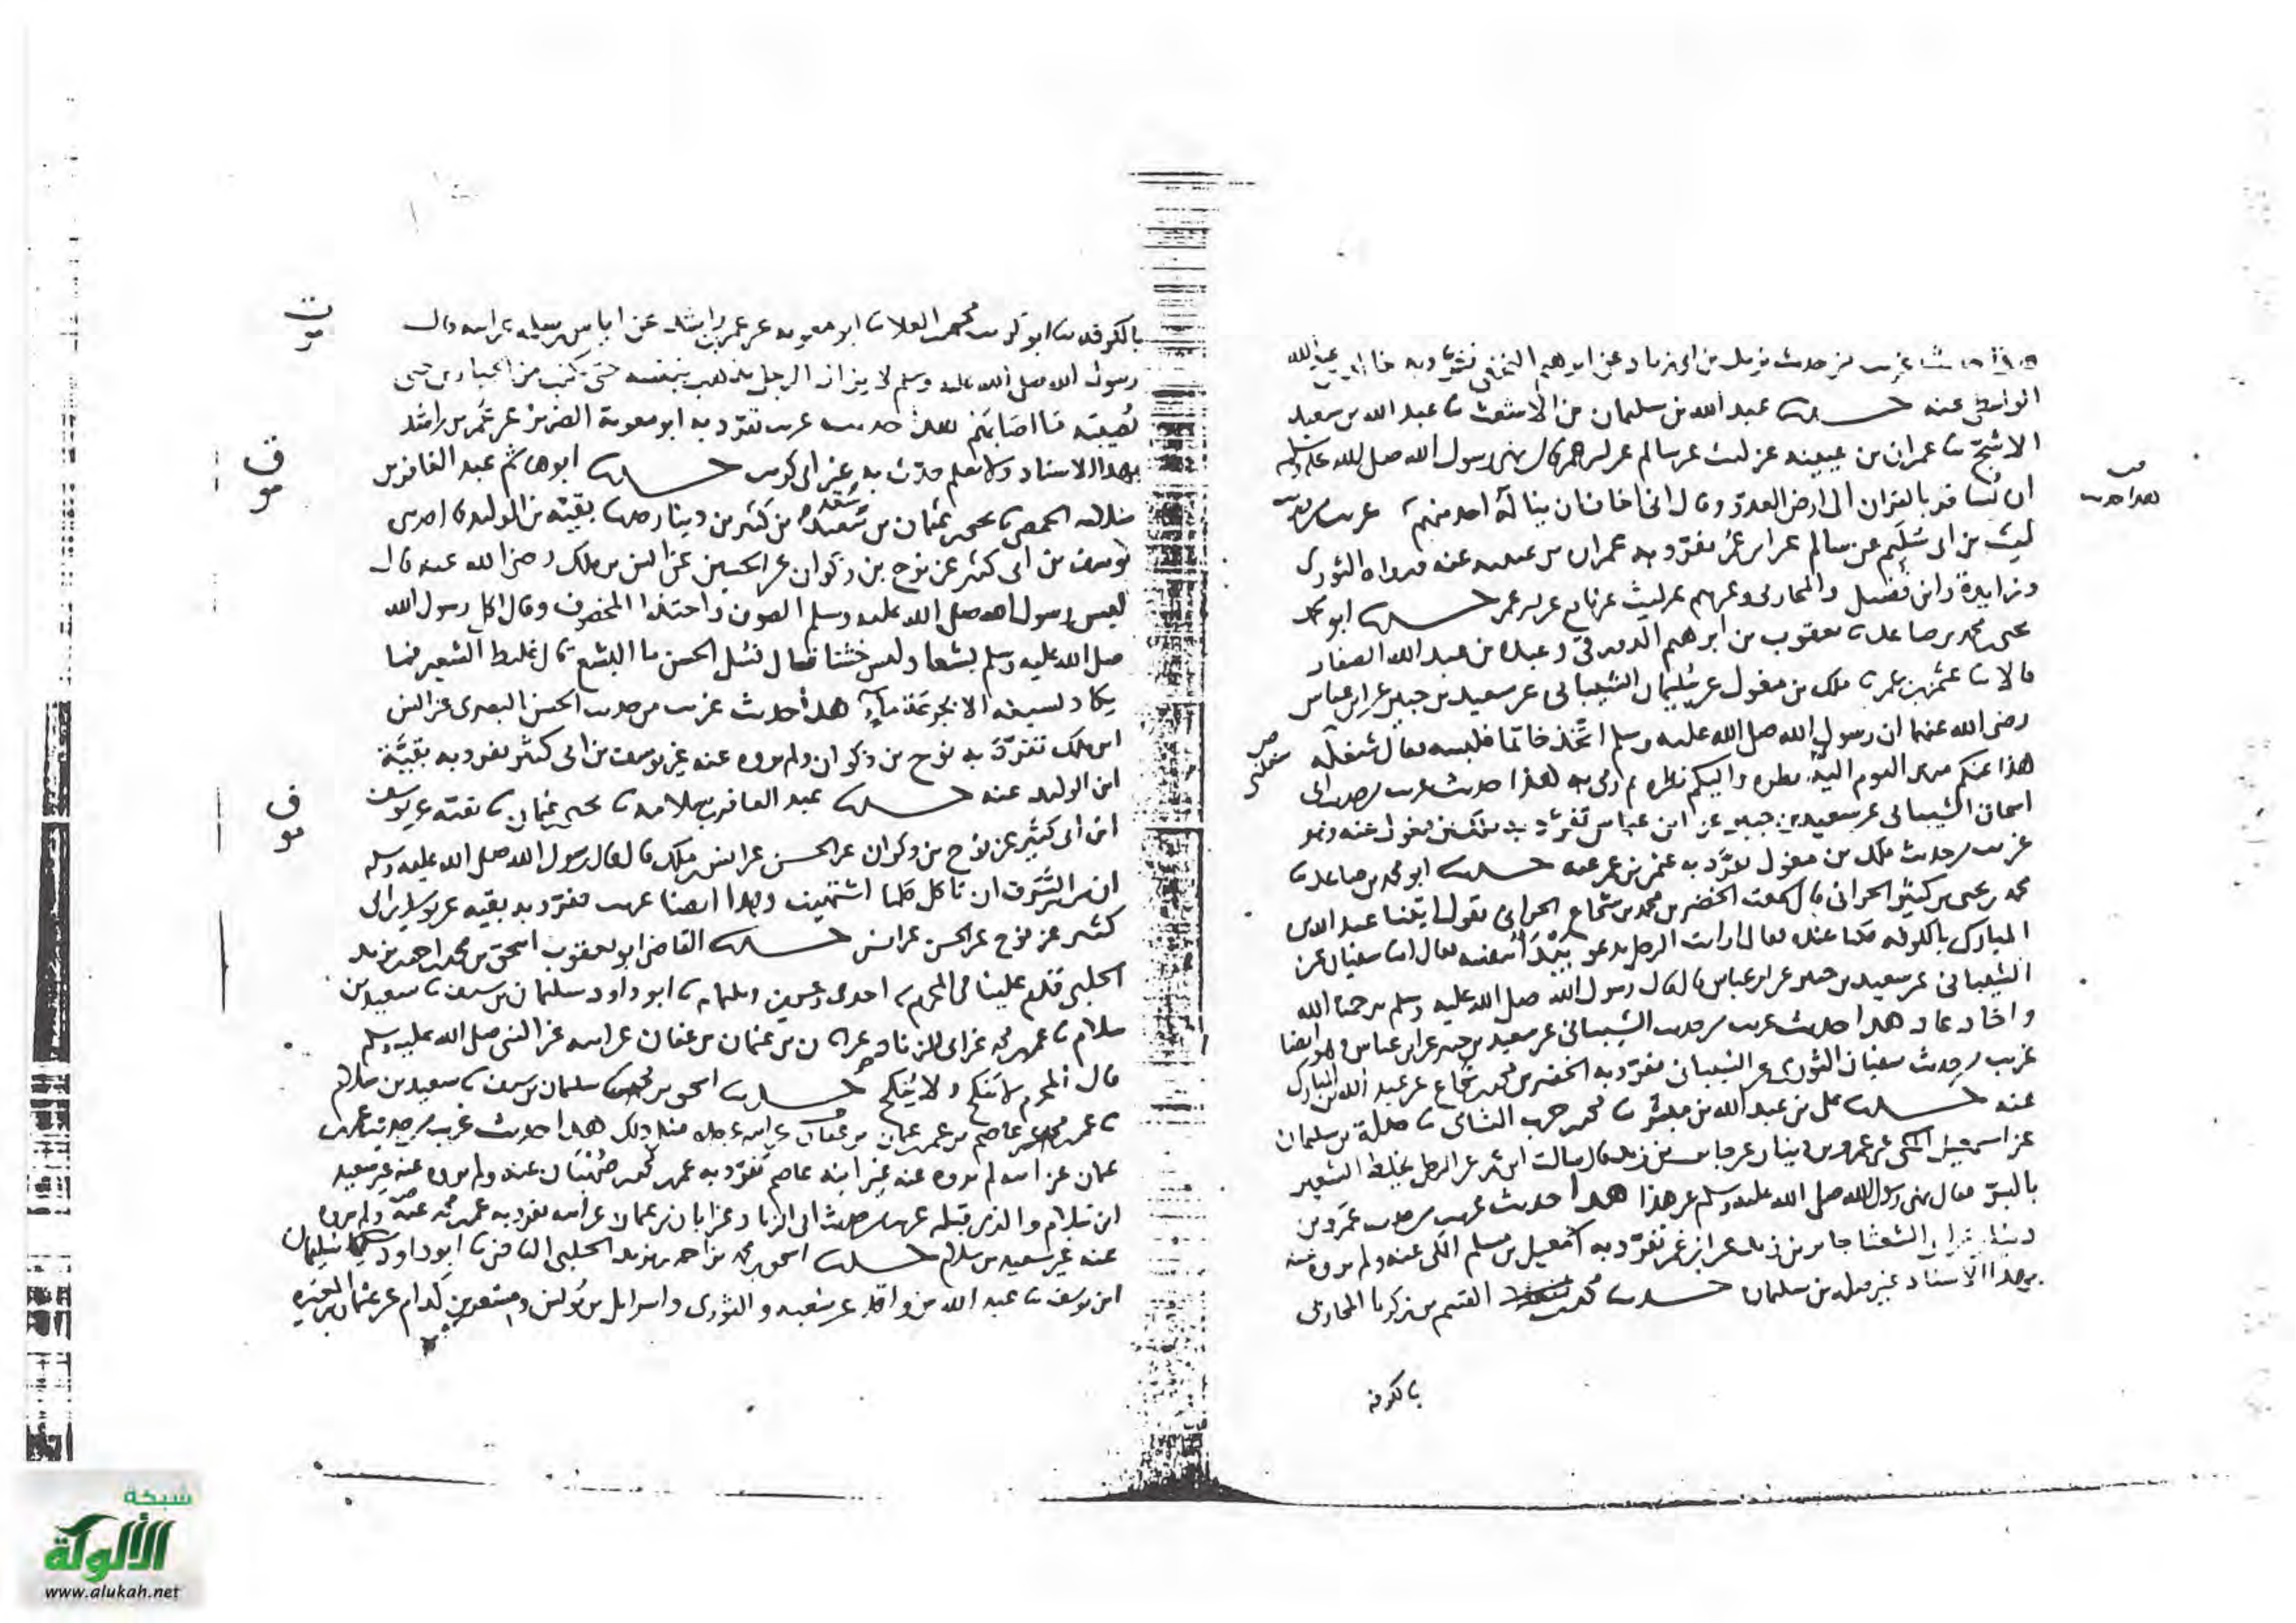 غريب من حديث يزيد بن ابى زياد عن ابرهيم النخعى تفرد به خالد بن عبد الله
الواسطى عنه حدثنا عبد الله بن سليمان بن الاشعث نا عبد الله بن سعيد
الاشج نا عمران بن عيينه عن ليث عن سالم عن ابن عمر قال نهى رسول الله صلى الله عليه وسلم
ان يسافر بالقران الى ارض العدو وقال انى اخاف ان يناله احد منهم غريب من حديث
ليث بن ابى سليم عن سالم عن ابن عمر تفرد به عمران بن عيينه عنه ورواه الثورى
وزايدة وابن فضيل والمحاربى وغيرهم عن ليث عن نافع عن ابن عمر حدثنا ابو محمد
يحيى بن محمد بن صاعد نا يعقوب بن ابرهيم الدورقى وعبدة بن عبد الله الصفار
قالا نا عثمن بن عمر نا ملك بن مغول عن سليمان الشيبانى عن سعيد بن جبير عن ابن عباس
رضى الله عنهما ان رسول الله صلى الله عليه وسلم اتخذ خاتما فلبسه فقال شغلنى
هذا عنكم منذ اليوم اليه نظره واليكم نظره ثم رمى به هذا حديث غريب من حديث ابى
اسحاق الشيبانى عن سعيد بن جبير عن ابن عباس تفرد به ملك بن مغول عنه وهو
غريب من حديث ملك بن مغول تفرد به عثمن بن عمر عنه حدثنا ابو محمد بن صاعد نا
محمد بن يحيى بن كثير الحرانى قال سمعت الخضر بن محمد بن شجاع الحرانى يقول اتينا عبد الله بن
المبارك بالكوفه فكنا عنده فقال ارايت الرجل يدعو يبدا بنفسه فقال نا سفيان عن
الشيبانى عن سعيد بن جبير عن ابن عباس قال قال رسول الله صلى الله عليه وسلم يرحمنا الله
واخا عاد هذا حديث غريب من حديث الشيبانى عن سعيد بن جبير عن ابن عباس وهو ايضا
غريب من حديث سفيان الثورى عن الشيبانى تفرد به الخضر بن محمد بن شجاع عن عبد الله بن المبارك
عنه حدثنا على بن عبد الله بن مبشر نا محمد بن حرب النشائى نا صلة بن سليمان
عن اسمعيل المكى عن عمرو بن دينار عن جابر بن زيد قال سالت ابن عمر عن الرجل يخلط الشعير
بالبر فقال نهى رسول الله صلى الله عليه وسلم عن هذا هذا حديث غريب من حديث عمرو بن
دينار عن ابى الشعثا جابر بن زيد عن ابن عمر تفرد به اسمعيل بن مسلم المكى عنه ولم يروه عنه
بهذا الاسناد غير صلة بن سليمان حدثنا محمد بن القسم بن زكريا المحاربى
بالكوفه
بالكوفه نا ابو كريب محمد بن العلا نا ابو معويه عن عمر بن راشد عن اياس بن سلمه عن ابيه قال
رسول الله صلى الله عليه وسلم لا يزال الرجل يذهب بنفسه حتى يكتب من الجبارين حتى
يصيبه ما اصابهم هذا حديث غريب تفرد به ابو معوية الضرير عن عمر بن راشد
بهذا الاسناد ولا نعلم حدث به غير ابى كريب حدثنا ابو هاشم عبد الغافر بن
سلامه الحمصى نا يحيى بن عثمان بن سعيد بن كثير بن دينار نا بقية بن الوليد نا
يوسف بن ابى كثير عن نوح بن ذكوان عن الحسن عن انس بن ملك رضى الله عنه قال
لبس رسول الله صلى الله عليه وسلم الصوف واحتذا المخصوف وقال اكل رسول الله
صلى الله عليه وسلم بشعا ولبس خشنا قال فسئل الحسن ما البشع قال غليظ الشعير فما
يكاد يسيغه الا بجرعة ماء هذا حديث غريب من حديث الحسن البصرى عن انس
ابن ملك تفرد به نوح بن ذكوان ولم يروه عنه غير يوسف بن ابى كثير تفرد به بقية
ابن الوليد عنه حدثنا عبد الغافر بن سلامه نا يحيى بن عثمان نا بقية عن يوسف
ابن ابى كثير عن نوح بن ذكوان عن الحسن عن انس بن ملك قال قال رسول الله صلى الله عليه وسلم
ان من السرف ان تاكل كلما اشتهيت وهذا ايضا غريب تفرد به بقيه عن يوسف بن ابى
كثير عن نوح عن الحسن عن انس حدثنا القاضى ابو يعقوب اسحق بن محمد بن احمد بن يزيد
الحلبى قدم علينا فى المحرم نا ابو داود سليمان بن سيف نا سعيد بن
سلام نا عمر بن محمد عن ابى الزناد عن ابان بن عثمان بن عفان عن ابيه عن النبى صلى الله عليه وسلم
قال المحرم لا ينكح ولا ينكح حدثنا اسحق بن محمد نا سليمان بن سيف نا سعيد بن سلام
نا عمر بن محمد عن عاصم بن عمر بن عثمان بن عفان عن ابيه عن جده مثل ذلك هذا حديث غريب من حديث عمر بن
عثمان عن ابيه لم يروه عنه غير ابنه عاصم تفرد به عمر بن محمد بن صهبان عنه ولم يروه عنه غير سعيد
ابن سلام والذى قبله غريب من حديث ابى الزناد عن ابان بن عثمان عن ابيه تفرد به عمر بن محمد عنه ولم يروه
عنه غير سعيد بن سلام حدثنا اسحق بن محمد بن احمد بن يزيد الحلبى القاضى نا ابو داود سليمان
ابن يوسف نا عبد الله بن واقد عن شعبه والثورى واسرايل بن يونس ومسعر بن كدام عن عثمان بن المغيره
شبكة
الألوكة
www.alukah.net